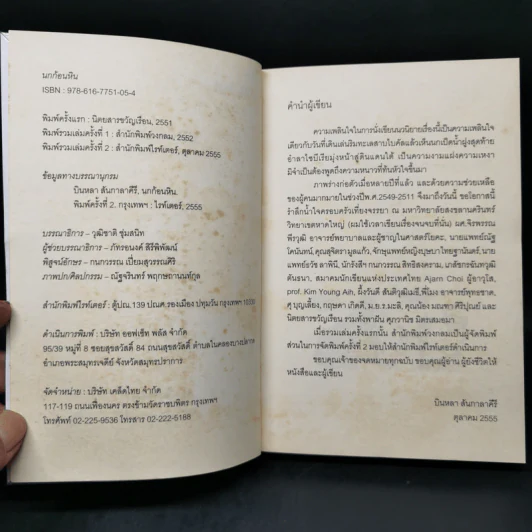 นกก้อนหิน
ISBN : 978-616-7751-05-4
พิมพ์ครั้งแรก : นิตยสารขวัญเรือน, 2551
พิมพ์รวมเล่มครั้งที่ 1 : สำนักพิมพ์วงกลม, 2552
พิมพ์รวมเล่มครั้งที่ 2 : สำนักพิมพ์ไรท์เตอร์, ตุลาคม 2555
ข้อมูลทางบรรณานุกรม
บินหลา สันกาลาคีรี, นกก้อนหิน.
พิมพ์ครั้งที่ 2. กรุงเทพฯ : ไรท์เตอร์, 2555
บรรณาธิการ – วุฒิชาติ ชุ่มสนิท
ผู้ช่วยบรรณาธิการ – ภัทรอนงค์ สิรีพิพัฒน์
พิสูจน์อักษร – กนกวรรณ เปี่ยมสุวรรณศิริ
ภาพปก/ศิลปกรรม – ณัฐจรินทร์ พฤกษดานนท์กุล
สำนักพิมพ์ไรท์เตอร์ : ตู้ปณ.139 ปณศ.รองเมือง ปทุมวัน กรุงเทพฯ 10330
ดำเนินการพิมพ์ : บริษัท ออฟเซ็ท พลัส จำกัด
95/39 หมู่ที่ 8 ซอยสุขสวัสดิ์ 84 ถนนสุขสวัสดิ์ ตำบลในคลองบางปลากด
อำเภอพระสมุทรเจดีย์ จังหวัดสมุทรปราการ
จัดจำหน่าย : บริษัท เคล็ดไทย จำกัด
117-119 ถนนเฟื่องนคร ตรงข้ามวัดราชบพิตร กรุงเทพฯ
โทรศัพท์ 02-225-9536 โทรสาร 02-222-5188
คำนำผู้เขียน
ความเพลินใจในการนั่งเขียนนวนิยายเรื่องนี้เป็นความเพลินใจ
เดียวกับวันที่เดินเล่นริมทะเลสาบไบคัลแล้วเห็นนกเป็ดน้ำฝูงสุดท้าย
อำลาไซบีเรียมุ่งหน้าสู่ดินแดนใต้ เป็นความงามแฝงความเหงา
มีจำเป็นต้องพูดถึงความหนาวที่ทิ่นหัวใจขึ้นมา
ภาพร่างก่อตัวเมื่อหลายปีที่แล้ว และด้วยความช่วยเหลือ
ของผู้คนมากมายในช่วงปีพ.ศ.2549-2511 จึงมาถึงวันนี้ ขอโอกาสนี้
รำลึกน้ำใจครอบครัวเที่ยงจรรยา ณ มหาวิทยาลัยสงขลานครินทร์
วิทยาเขตหาดใหญ่ (ผมใช้เวลาเขียนเรื่องจนจบที่นั่น) ผศ.จีรพรรณ
พีรวุฒิ อาจารย์พยาบาลและผู้ชำนาญในศาสตร์โยคะ, นายแพทย์ณัฐ
โคนันทน์, คุณสุจิตรา มูลแก้ว, จักษุแพทย์หญิงบุษบาไทยฐานันดร์, นาย
prof. Kim Young Aih,
นิตยสารขวัญเรือน
เมื่อรวมเล่มครั้งแรกนั้น สำนักพิมพ์วงกลมเป็นผู้จัดพิมพ์
ส่วนในการจัดพิมพ์ครั้งที่ 2 มอบให้สำนักพิมพ์ไรท์เตอร์ดำเนินการ
ขอบคุณเจ้าของจดหมายทุกฉบับ ขอบคุณผู้อ่าน ผู้ยังชีวิตให้
หนังสือและผู้เขียน
บินหลา สันกาลาคีรี
ตุลาคม 2555